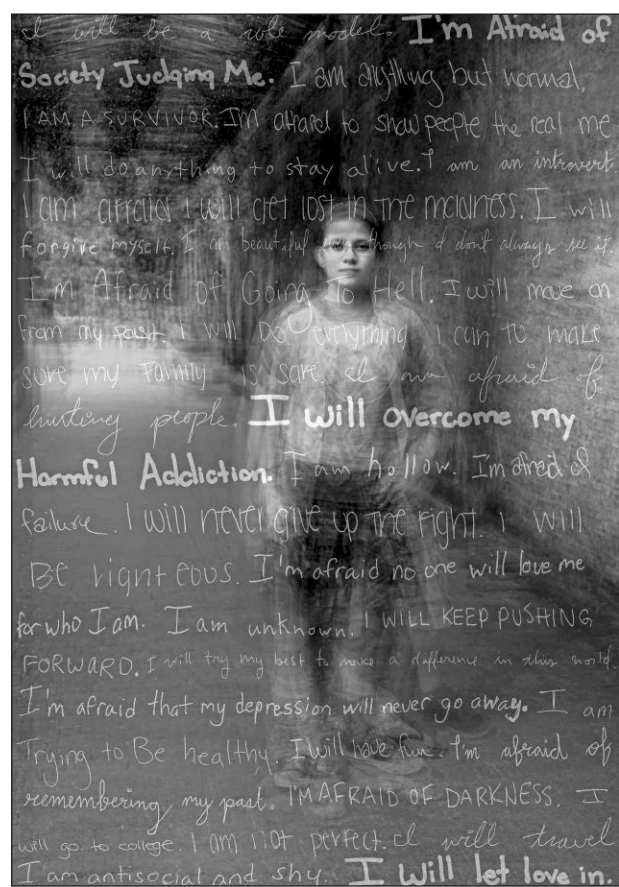 I will be a role model. I'm Afraid of
Society Judging Me. I am anything but normal,
I AM A SURVIVOR. I'm afraid to show people the real me
I will do anything to stay alive. I am an introvert.
I am afraid I will get lost in the madness. I will
forgive myself. I am beautiful even though I don't always see it.
I'm Afraid of Going To Hell. I will move on
from my past. I will Do everything I can to make
sure my family is safe. I am afraid of
hurting people. I will overcome my
Harmful Addiction. I am hollow. I'm afraid of
failure. I will never give up the fight. I will
Be righteous. I'm afraid no one will love me
for who I am. I am unknown. I WILL KEEP PUSHING
FORWARD. I will try my best to make a difference in this world.
I'm afraid that my depression will never go away. I am
Trying to Be healthy. I will have fun. I'm afraid of
remembering my past. I'M AFRAID OF DARKNESS. I
will go to college. I am not perfect. I will travel
I am antisocial and shy. I Will let love in.